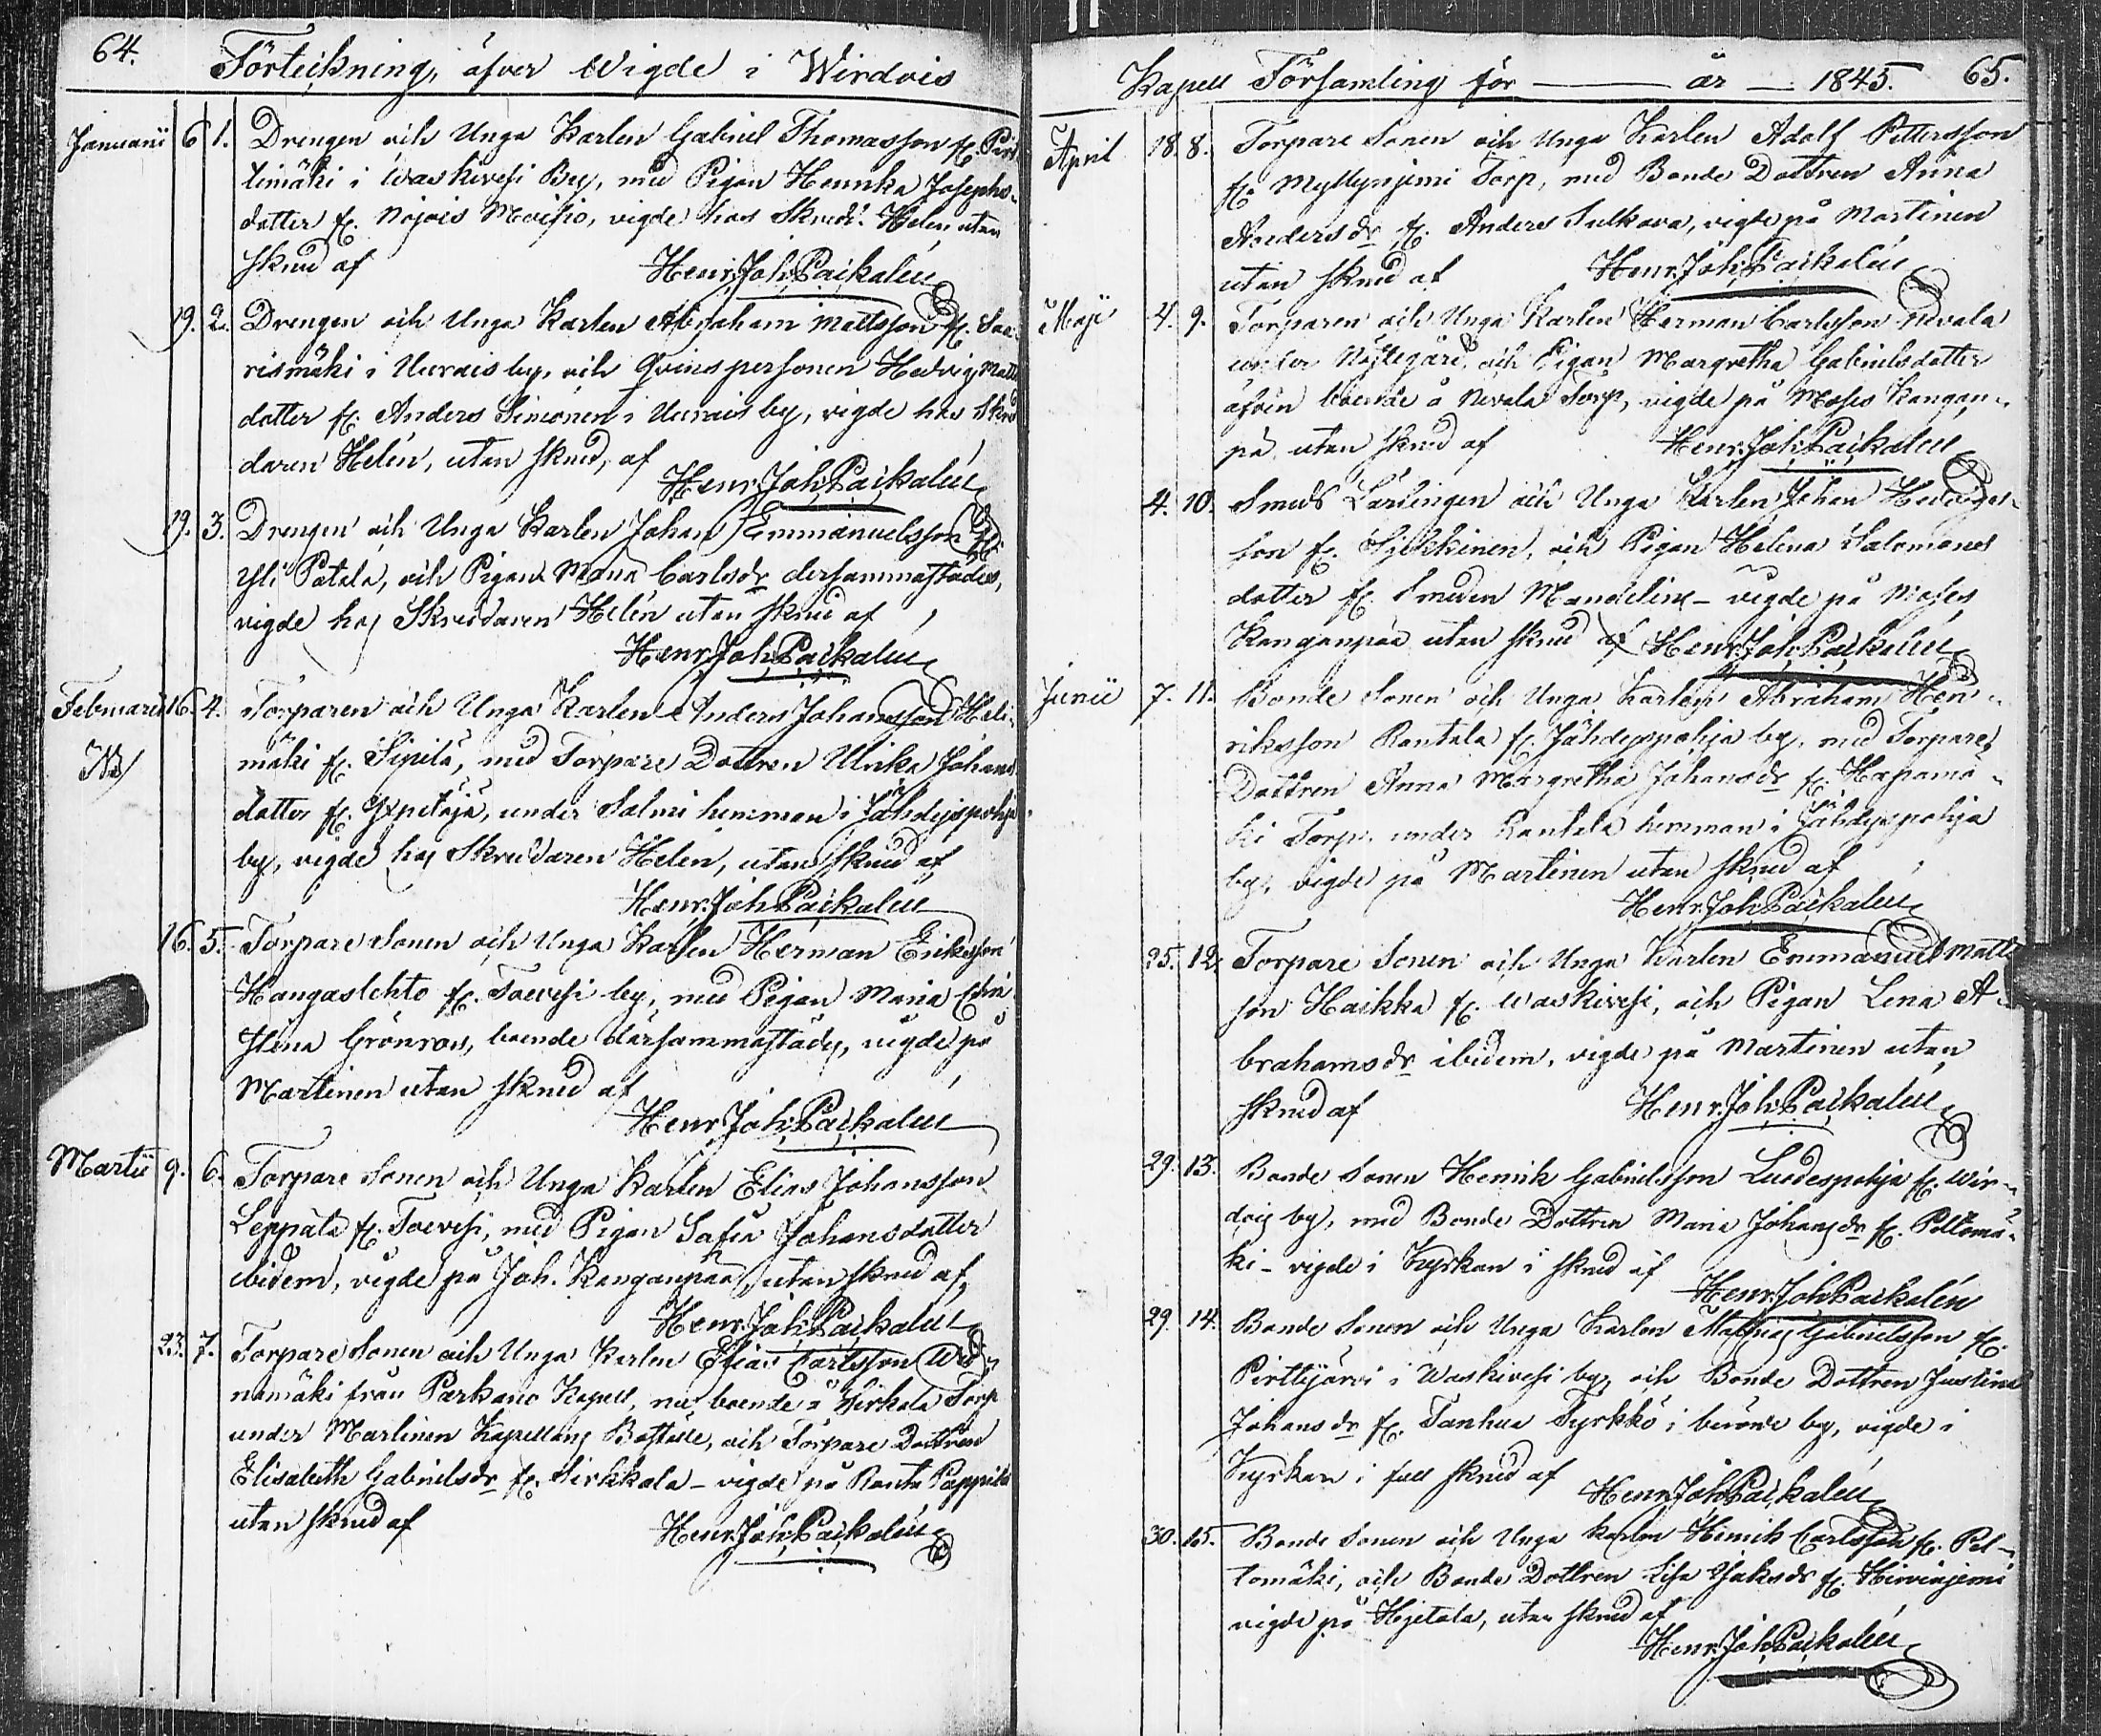 64.
Förteckning, öfver Wigde i Wirdois
Januarii 6 1. Drengen och Unga Karlen Gabriel Thomasson fr. Pir
timäki i Waskivesi By, med Pigan Henrika Josephs-
dotter fr. Nojois Moisio, vigde hos Skredd. Helen utan
skrud af Henr. Joh. Packalén
19. 2. Drengen och Unga Karlen Abraham Mattsson fr. Saa-
rismäki i Uurais by, och Qvinspersonen Hedvig Matts
dotter fr. Anders Simonen i Uurais by, vigde hos Skred
daren Helén, utan skrud, af
Henr. Joh. Packalén
19. 3. Drengen och Unga Karlen Johan Emmanuelsson fr.
Yli Patala, och Pigan Maria Carlsdr dersammastädes,
vigde hos Skreddaren Helén utan skrud af
Henr. Joh. Packalén
Februarii 16. 4. Torparen och Unga Karlen Anders Johansson Heli-
NB mäki fr. Sipilä, med Torpare Dottren Ulrika Johans
dotter fr. under Salmi hemman i Jähdyspohja
by, vigde hos Skreddaren Helen, utan skrud af
Henr. Joh. Packalén
16. 5. Torpare Sonen och Unga Karlen Herman Eriksson
Kangaslehto fr. Toevesi by, med Pigan Maria Chri
stina Grönroos, boende dersammastädes, vigde på
Martinen utan skrud af
Henr. Joh. Packalén
Martii 9. 6. Torpare Sonen och Unga Karlen Elias Johansson
Leppälä fr. Toevesi, med Pigan Safia Johansdotter
ibidem, vigde på Joh. Kanganpää, utan skrud af
Henr. Joh. Packalén
23. 7. Torpare Sonen och Unga Karlen Elias Carlsson
namäki från Parkano Kapell, nu boende å Sirkala Torp
under Martinen Kapellans Boställe, och Torpare Dottren
Elisabeth Gabrielsdr fr. Sirkkala - vigde på Ranta Pappila
utan skrud af Henr. Joh. Packalén
Kapell Församling för år 1845. 65.
April 18. 8. Torpare Sonen och Unga Karlen Adolf Pettersson
fr. Myllyniemi Torp, med Bonde Dottren Anna
Andersdr fr. Anders Sulkava, vigde på Martinen
utan skrud af Henr. Joh. Packalén
Maji 4. 9. Torparen och Unga Karlen Herman Carlsson Nevala
under och Pigan Margretha Gabrielsdotter
äfven boende å Nevala Torp, vigde på Moses Kangan-
pä utan skrud af Henr. Joh. Packalén
4. 10. Smeds Lärlingen och Unga Karlen Johan Hedvigs-
son fr. och Pigan Helena Salomons
dotter fr. Smeden Mandelin - vigde på Moses
Kanganpää utan skrud af Henr. Joh. Packalén
Junii 7. 11. Bonde Sonen och Unga Karlen Abraham Hen-
riksson Rantala fr. Jähdyspohja by, med Torpare
Dottren Anna Margretha Johansdr fr. Hapamä-
ki Torp. under Rantala hemman i Jähdyspohja
by, vigde på Martinen utan skrud af
Henr. Joh. Packalén
25. 12. Torpare Sonen och Unga Karlen Emmanuel Matts
son Haikka fr. Waskivesi, och Pigan Lena A-
brahamsdr ibidem, vigde på Martinen utan
skrud af Henr. Joh. Packalén
29. 13. Bonde Sonen Henrik Gabrielsson Luodespohja fr. Wir-
dois by, med Bonde Dottren Maria Johansdr fr. Peltomä-
ki - vigde i Kyrkan i skrud af
Henr. Joh. Packalén
29. 14. Bonde Sonen och Unga Karlen Mathias Gabrielsson fr.
Pirttijärvi i Waskivesi by, och Bonde Dottren Justina
Johansdr fr. Tanhua Tyrkkö i berörde by, vigde i
Kyrkan i full skrud af
Henr. Joh. Packalén
30. 15. Bonde Sonen och Unga Karlen Henrik Carlsson fr. Pel-
tomäki, och Bonde Dottren Lisa Isaksdr fr. Hirviniemi
vigde på Hjetala, utan skrud af
Henr. Joh. Packalén